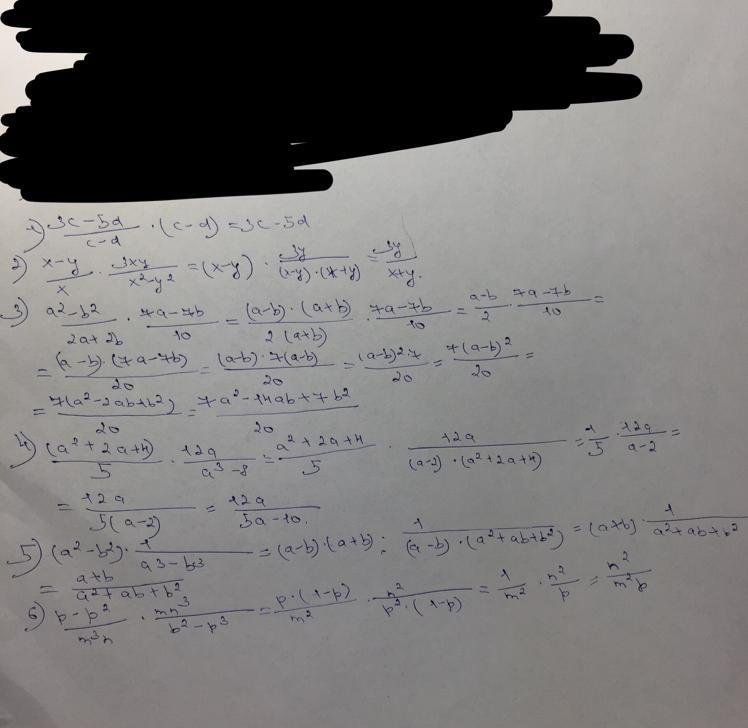 1) (3c-5d)/(c-d) · (c-d) = 3c-5d
2) (x-y)/x · 3xy/(x²-y²) = (x-y) · 3y/((x-y)·(x+y)) = 3y/(x+y).
3) (a²-b²)/(2a+2b) · (7a-7b)/10 = ((a-b)·(a+b))/(2(a+b)) · (7a-7b)/10 = (a-b)/2 · (7a-7b)/10 =
= ((a-b)·(7a-7b))/20 = ((a-b)·7(a-b))/20 = ((a-b)²·7)/20 = (7(a-b)²)/20 =
= (7(a²-2ab+b²))/20 = (7a²-14ab+7b²)/20
4) (a²+2a+4)/5 · 12a/(a³-8) = (a²+2a+4)/5 · 12a/((a-2)·(a²+2a+4)) = 1/5 · 12a/(a-2) =
= 12a/(5(a-2)) = 12a/(5a-10).
5) (a²-b²) · 1/(a³-b³) = (a-b)·(a+b) : 1/((a-b)·(a²+ab+b²)) = (a+b) · 1/(a²+ab+b²)
= (a+b)/(a²+ab+b²)
6) (p-p²)/(m³n) · mn³/(p²-p³) = (p·(1-p))/m² · n²/(p²·(1-p)) = 1/m² · n²/p = n²/(m²p)